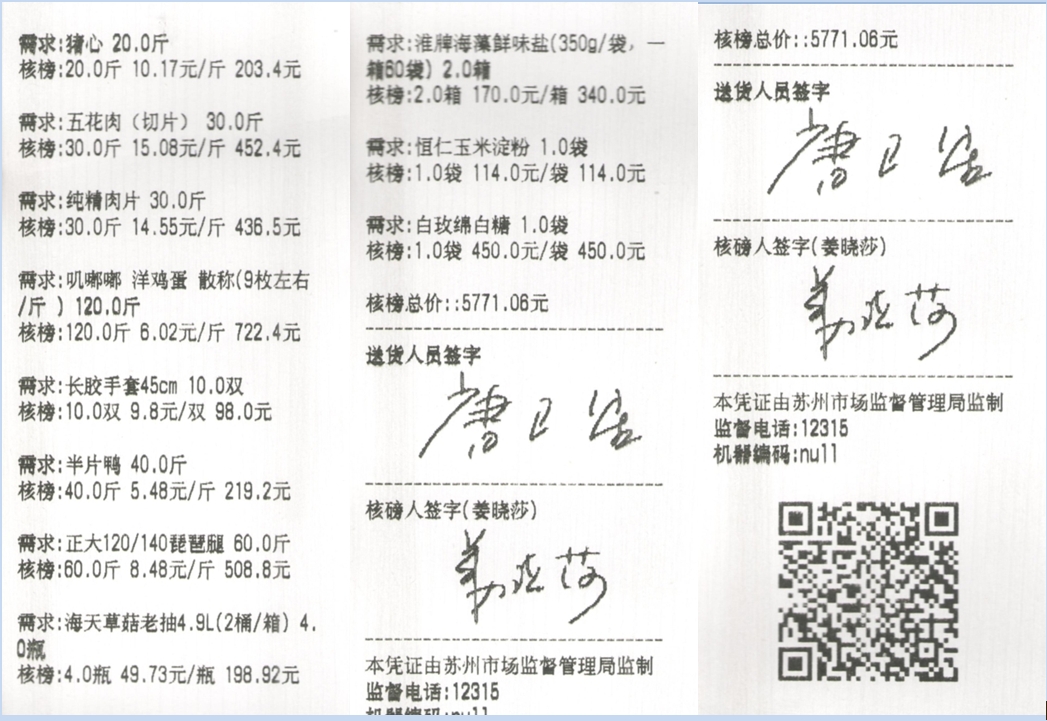 需求:猪心 20.0斤
核榜:20.0斤 10.17元/斤 203.4元
需求:五花肉（切片） 30.0斤
核榜:30.0斤 15.08元/斤 452.4元
需求:纯精肉片 30.0斤
核榜:30.0斤 14.55元/斤 436.5元
需求:叽嘟嘟 洋鸡蛋 散称(9枚左右
/斤 ) 120.0斤
核榜:120.0斤 6.02元/斤 722.4元
需求:长胶手套45cm 10.0双
核榜:10.0双 9.8元/双 98.0元
需求:半片鸭 40.0斤
核榜:40.0斤 5.48元/斤 219.2元
需求:正大120/140琵琶腿 60.0斤
核榜:60.0斤 8.48元/斤 508.8元
需求:海天草菇老抽4.9L(2桶/箱) 4.
0瓶
核榜:4.0瓶 49.73元/瓶 198.92元
需求:淮牌海藻鲜味盐(350g/袋, 一
箱60袋) 2.0箱
核榜:2.0箱 170.0元/箱 340.0元
需求:恒仁玉米淀粉 1.0袋
核榜:1.0袋 114.0元/袋 114.0元
需求:白玫绵白糖 1.0袋
核榜:1.0袋 450.0元/袋 450.0元
核榜总价::5771.06元
送货人员签字
核磅人签字(姜晓莎)
姜晓莎
本凭证由苏州市场监督管理局监制
监督电话:12315
机器编码:null
核榜总价::5771.06元
送货人员签字
核磅人签字(姜晓莎)
姜晓莎
本凭证由苏州市场监督管理局监制
监督电话:12315
机器编码:null